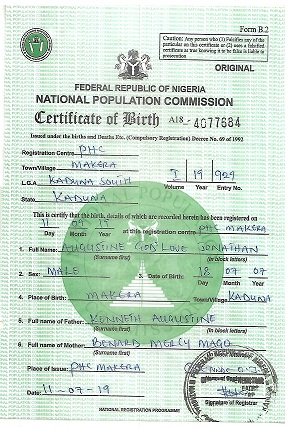 Form B.2
Caution: Any person who (1) Falsifies any of the
particular on this certificate or (2) uses a falsified
certificate as true knowing it to be false is liable to
prosecution
ORIGINAL
FEDERAL REPUBLIC OF NIGERIA
NATIONAL POPULATION COMMISSION
Certificate of Birth A18 - 4077684
Issued under the births and Deaths Etc. (Compulsory Registration) Decree No. 69 of 1992
Registration Centre PHC
Town/Village MAKERA
L.G.A KADUNA SOUTH
I 19 929
Volume Year Entry No.
State KADUNA
This is certify that the birth, details of which are recorded herein has been registered on
11 07 at this registration centre PHC MAKERA
1. Full Name: AUGUSTINE GODLOVE JONATHAN
(Surname first) (in block letters)
2. Sex: MALE 3. Date of Birth: 12 07 07
4. Place of Birth: MAKERA Town/Village KADUNA
5. Full name of Father: KENNETH AUGUSTINE
(Surname first) (in Block letters)
6. Full name of Mother: BENARD MERCY MAGO
(Surname first) (in block letters)
Place of Issue: PHC MAKERA
Date: 11-07-19
Signature of Registrar
NATIONAL REGISTRATION PROGRAMME